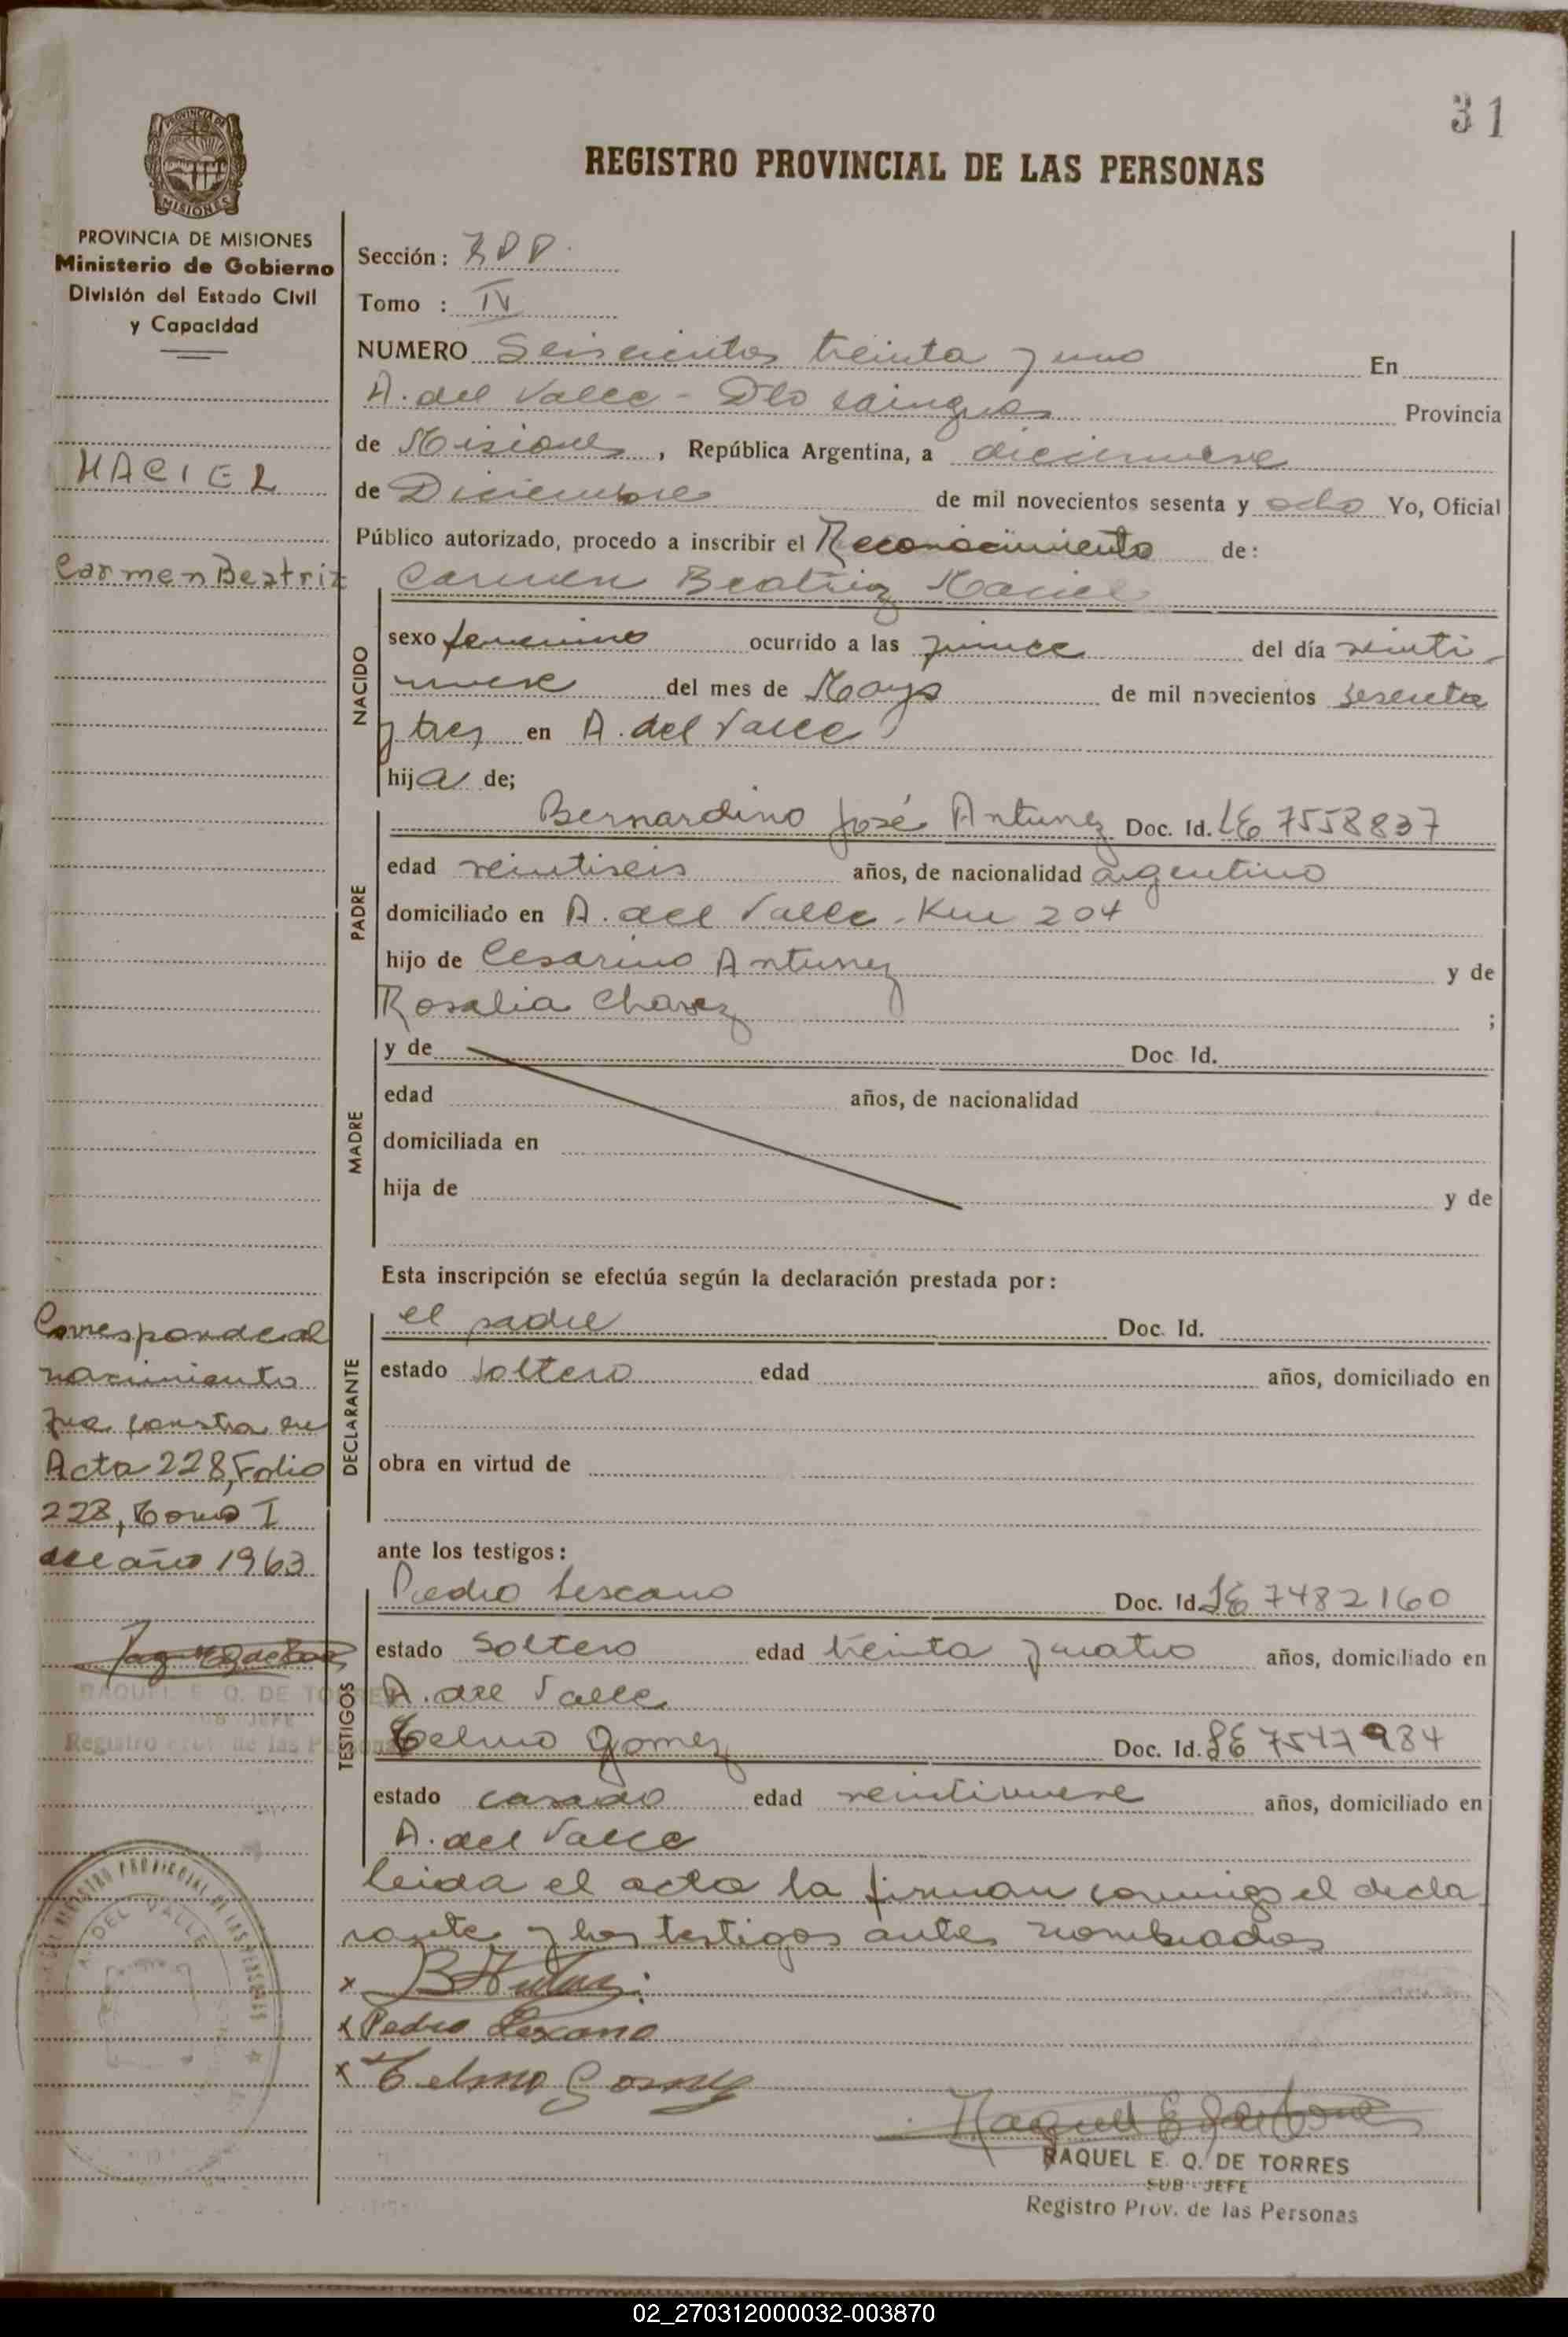 31
REGISTRO PROVINCIAL DE LAS PERSONAS
PROVINCIA DE MISIONES
MISIONES
PROVINCIA DE MISIONES
Ministerio de Gobierno
División del Estado Civil
y Capacidad
MACIEL
Carmen Beatriz
Corresponde al
nacimiento
que consta en
Acta 228, Folio
228, Tomo I
del año 1963
RAQUEL E. Q. DE TORRES
SUB JEFE
Registro Prov. de las Personas
Sección:
Tomo : IV
NUMERO Seiscientos treinta y uno En
A. del Valle - Dto Cainguas Provincia
de Misiones, República Argentina, a diecinueve
de Diciembre de mil novecientos sesenta y ocho Yo, Oficial
Público autorizado, procedo a inscribir el Reconocimiento de:
Carmen Beatriz Maciel
NACIDO
sexo femenino ocurrido a las quince del día veinti
nueve del mes de Mayo de mil novecientos sesenta
y tres en A. del Valle
hija de;
PADRE
Bernardino José Antunez Doc. Id. LE 7558837
edad veintiseis años, de nacionalidad argentino
domiciliado en A. del Valle - Km 204
hijo de Cesarino Antunez y de
Rosalia Chavez ;
MADRE
y de Doc. Id.
edad años, de nacionalidad
domiciliada en
hija de y de
Esta inscripción se efectúa según la declaración prestada por:
DECLARANTE
el padre Doc. Id.
estado soltero edad años, domiciliado en
obra en virtud de
ante los testigos:
TESTIGOS
Pedro Lescano Doc. Id. LE 7482160
estado soltero edad treinta y cuatro años, domiciliado en
A. del Valle
Telmo Gomez Doc. Id. LE 7547984
estado casado edad veintinueve años, domiciliado en
A. del Valle
leida el acta la firman conmigo el decla
rante y los testigos antes nombrados
x
x Pedro Lescano
x Telmo Gomez
RAQUEL E. Q. DE TORRES
SUB - JEFE
Registro Prov. de las Personas
02_270312000032-003870